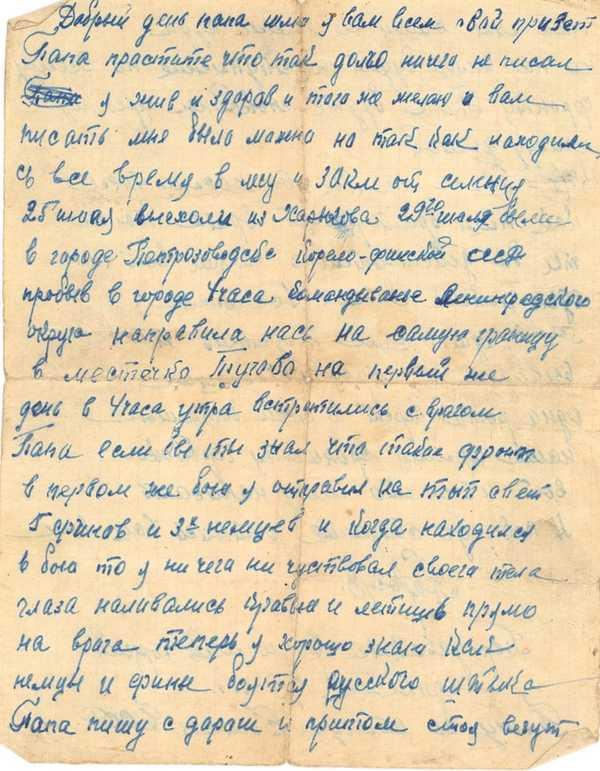 Добрый день папа шлю я вам всем свой привет
Папа праститe что так долго ничего не писал
я жив и здоров и того же желаю и вам
писать мня было можна но так как находимы
сь все время в лесу и за км от селения
25 июля выехали из Харькова 29го июля были
в городе Петрозоводске Корело-финской ССР
пробыв в городе 4 часа командыванье Ленинградского
округа направила нась на самую границу
в местечко на первый же
день в 4 часа утра встретились с врагом
Папа если бы ты знал что такое фронт
в первом же бою я отправил на тыт свет
5 финов и 3х немцев и когда находился
в бою то я ни чего ни чуствовал своего тела
глаза наливались кравью и летишь прямо
на врага теперь я хорошо знаю как
немцы и фины боятся русского штыка
Папа пишу с дароги и притом стоя везут